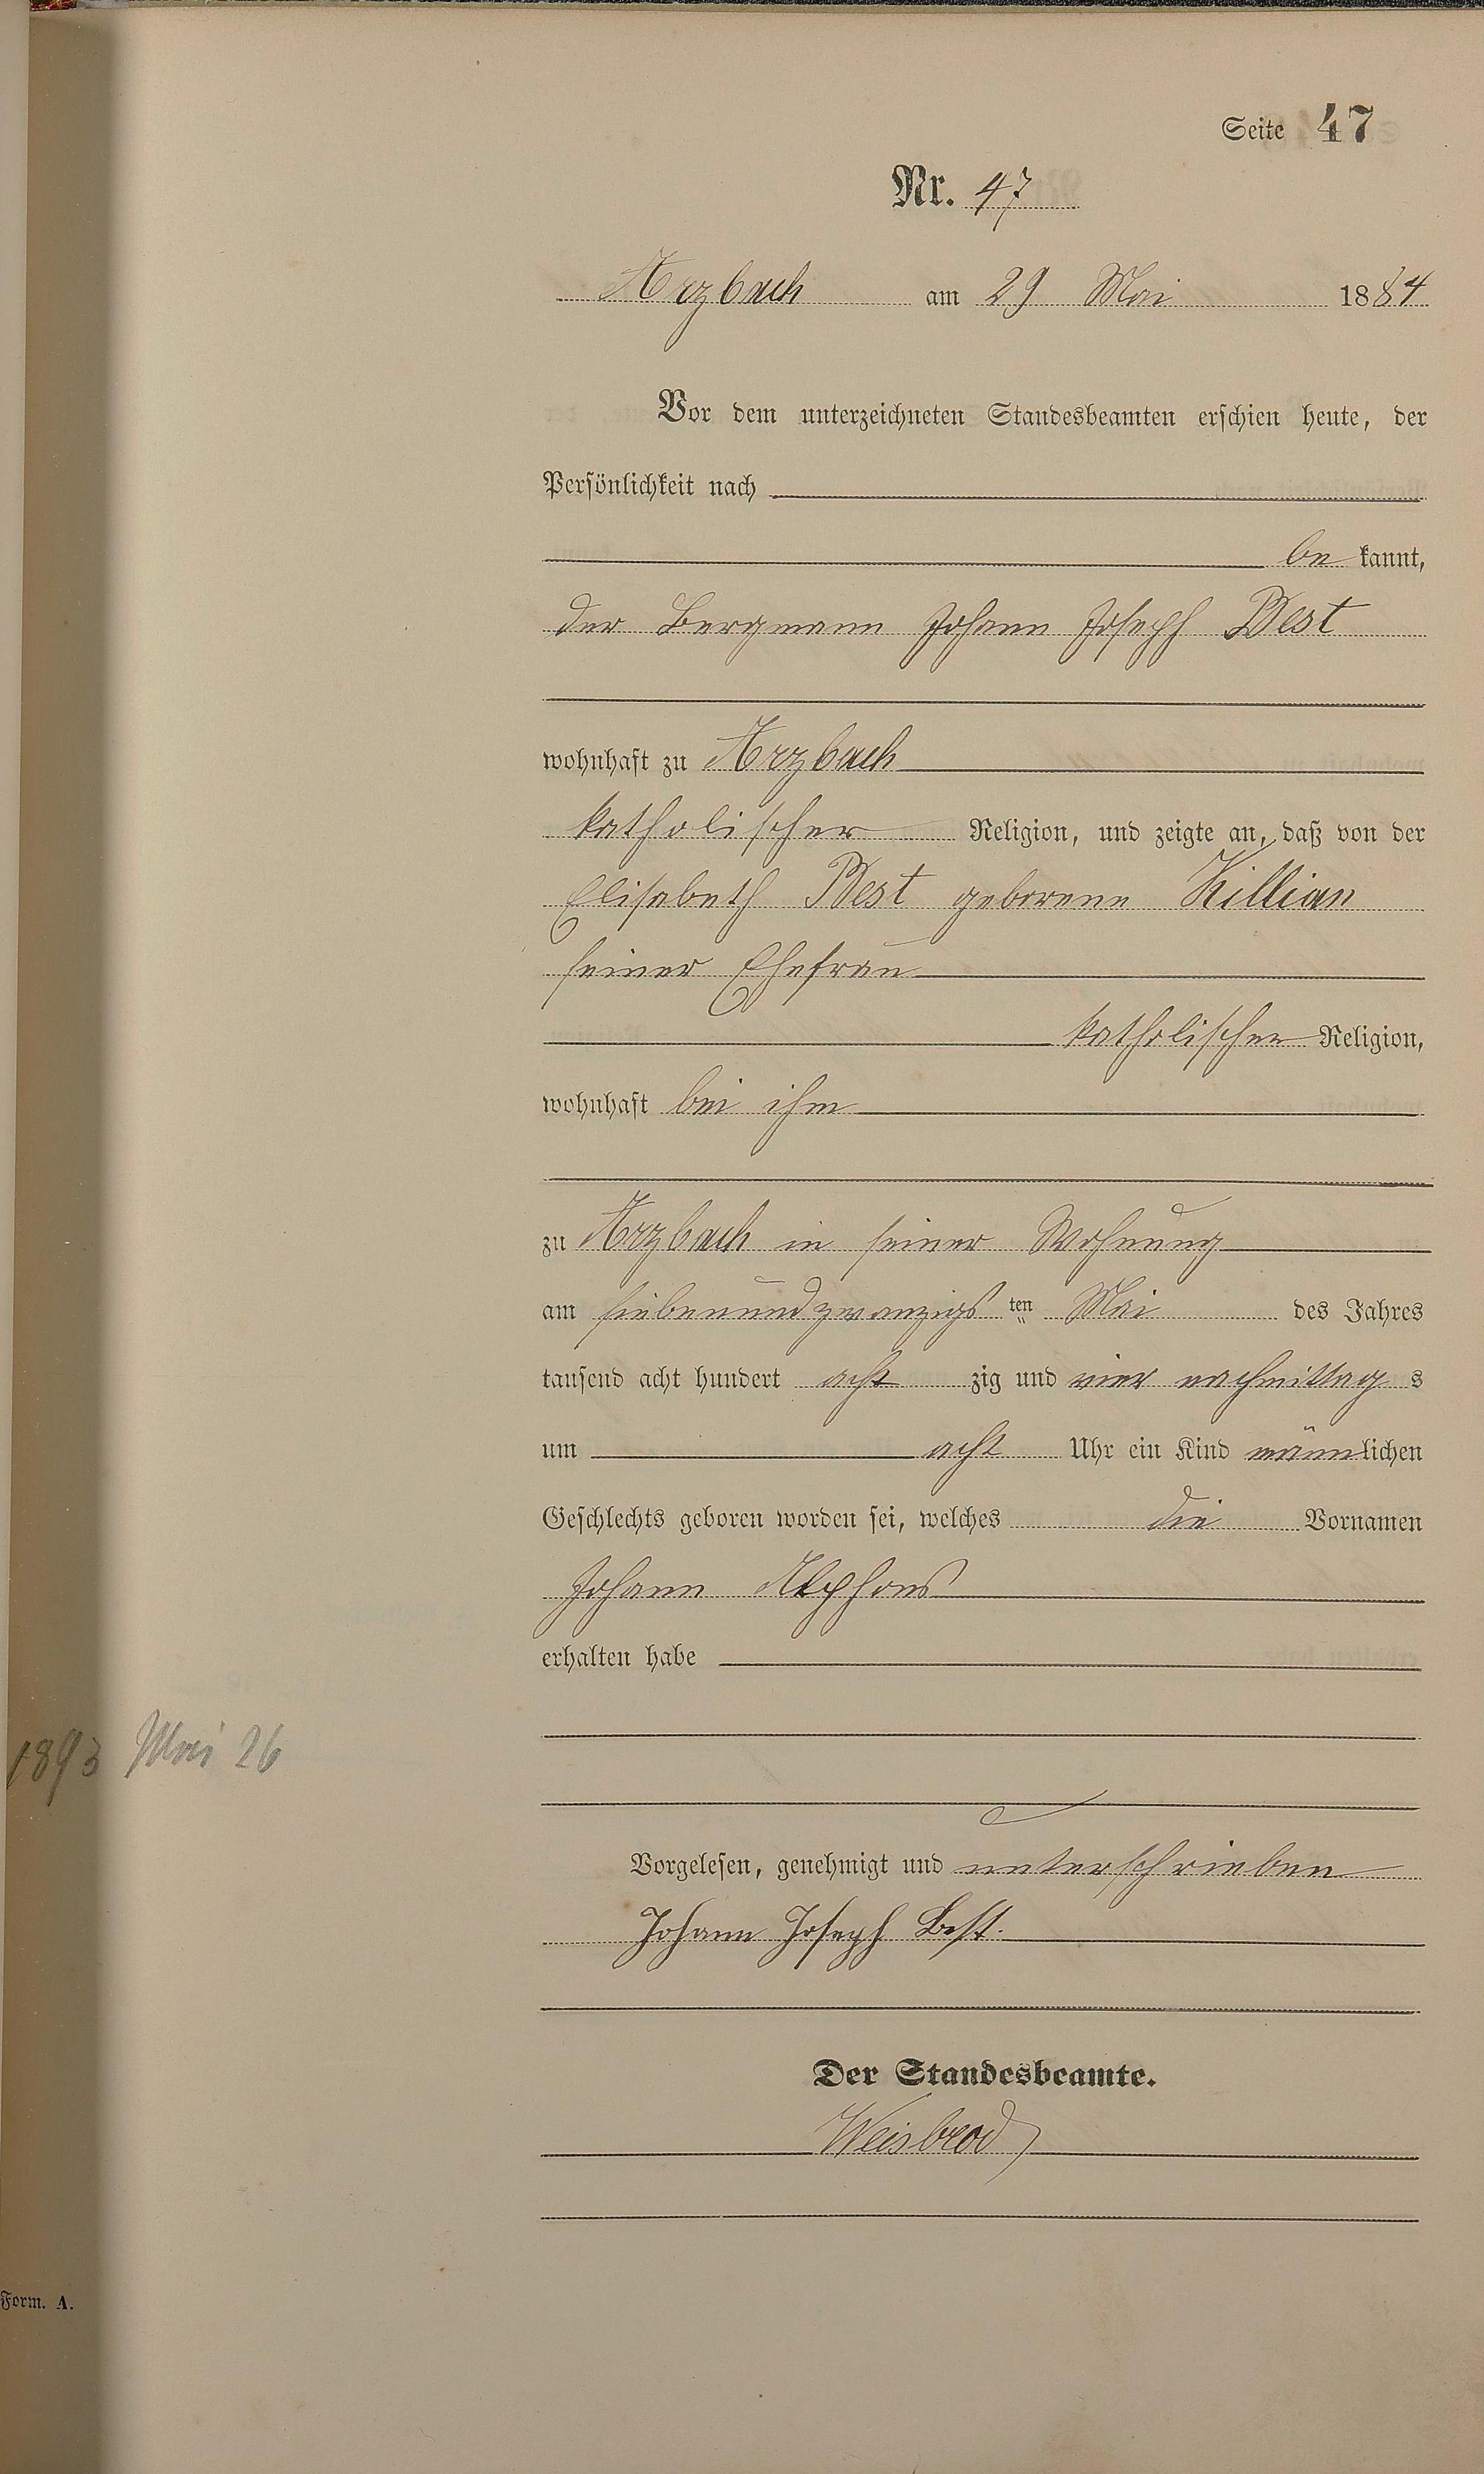 Seite 47
Nr. 47
Arzbach am 29 Mai 1884
Vor dem unterzeichneten Standesbeamten erschien heute, der
Persönlichkeit nach
be kannt,
der Bergmann Johann Joseph Best
wohnhaft zu Arzbach
katholischer Religion, und zeigte an, daß von der
Elisabeth Best geborene Killian
seiner Ehefrau
katholischer Religion,
wohnhaft bei ihm
zu Arzbach in seiner Wohnung
am siebenundzwanzigs ten Mai des Jahres
tausend acht hundert acht zig und vier nachmittag s
um acht Uhr ein Kind männlichen
Geschlechts geboren worden sei, welches die Vornamen
Johann Alphons
erhalten habe
1893 Mai 26
Vorgelesen, genehmigt und unterschrieben
Johann Joseph Best.
Der Standesbeamte.
Weisbrod
Form. A.